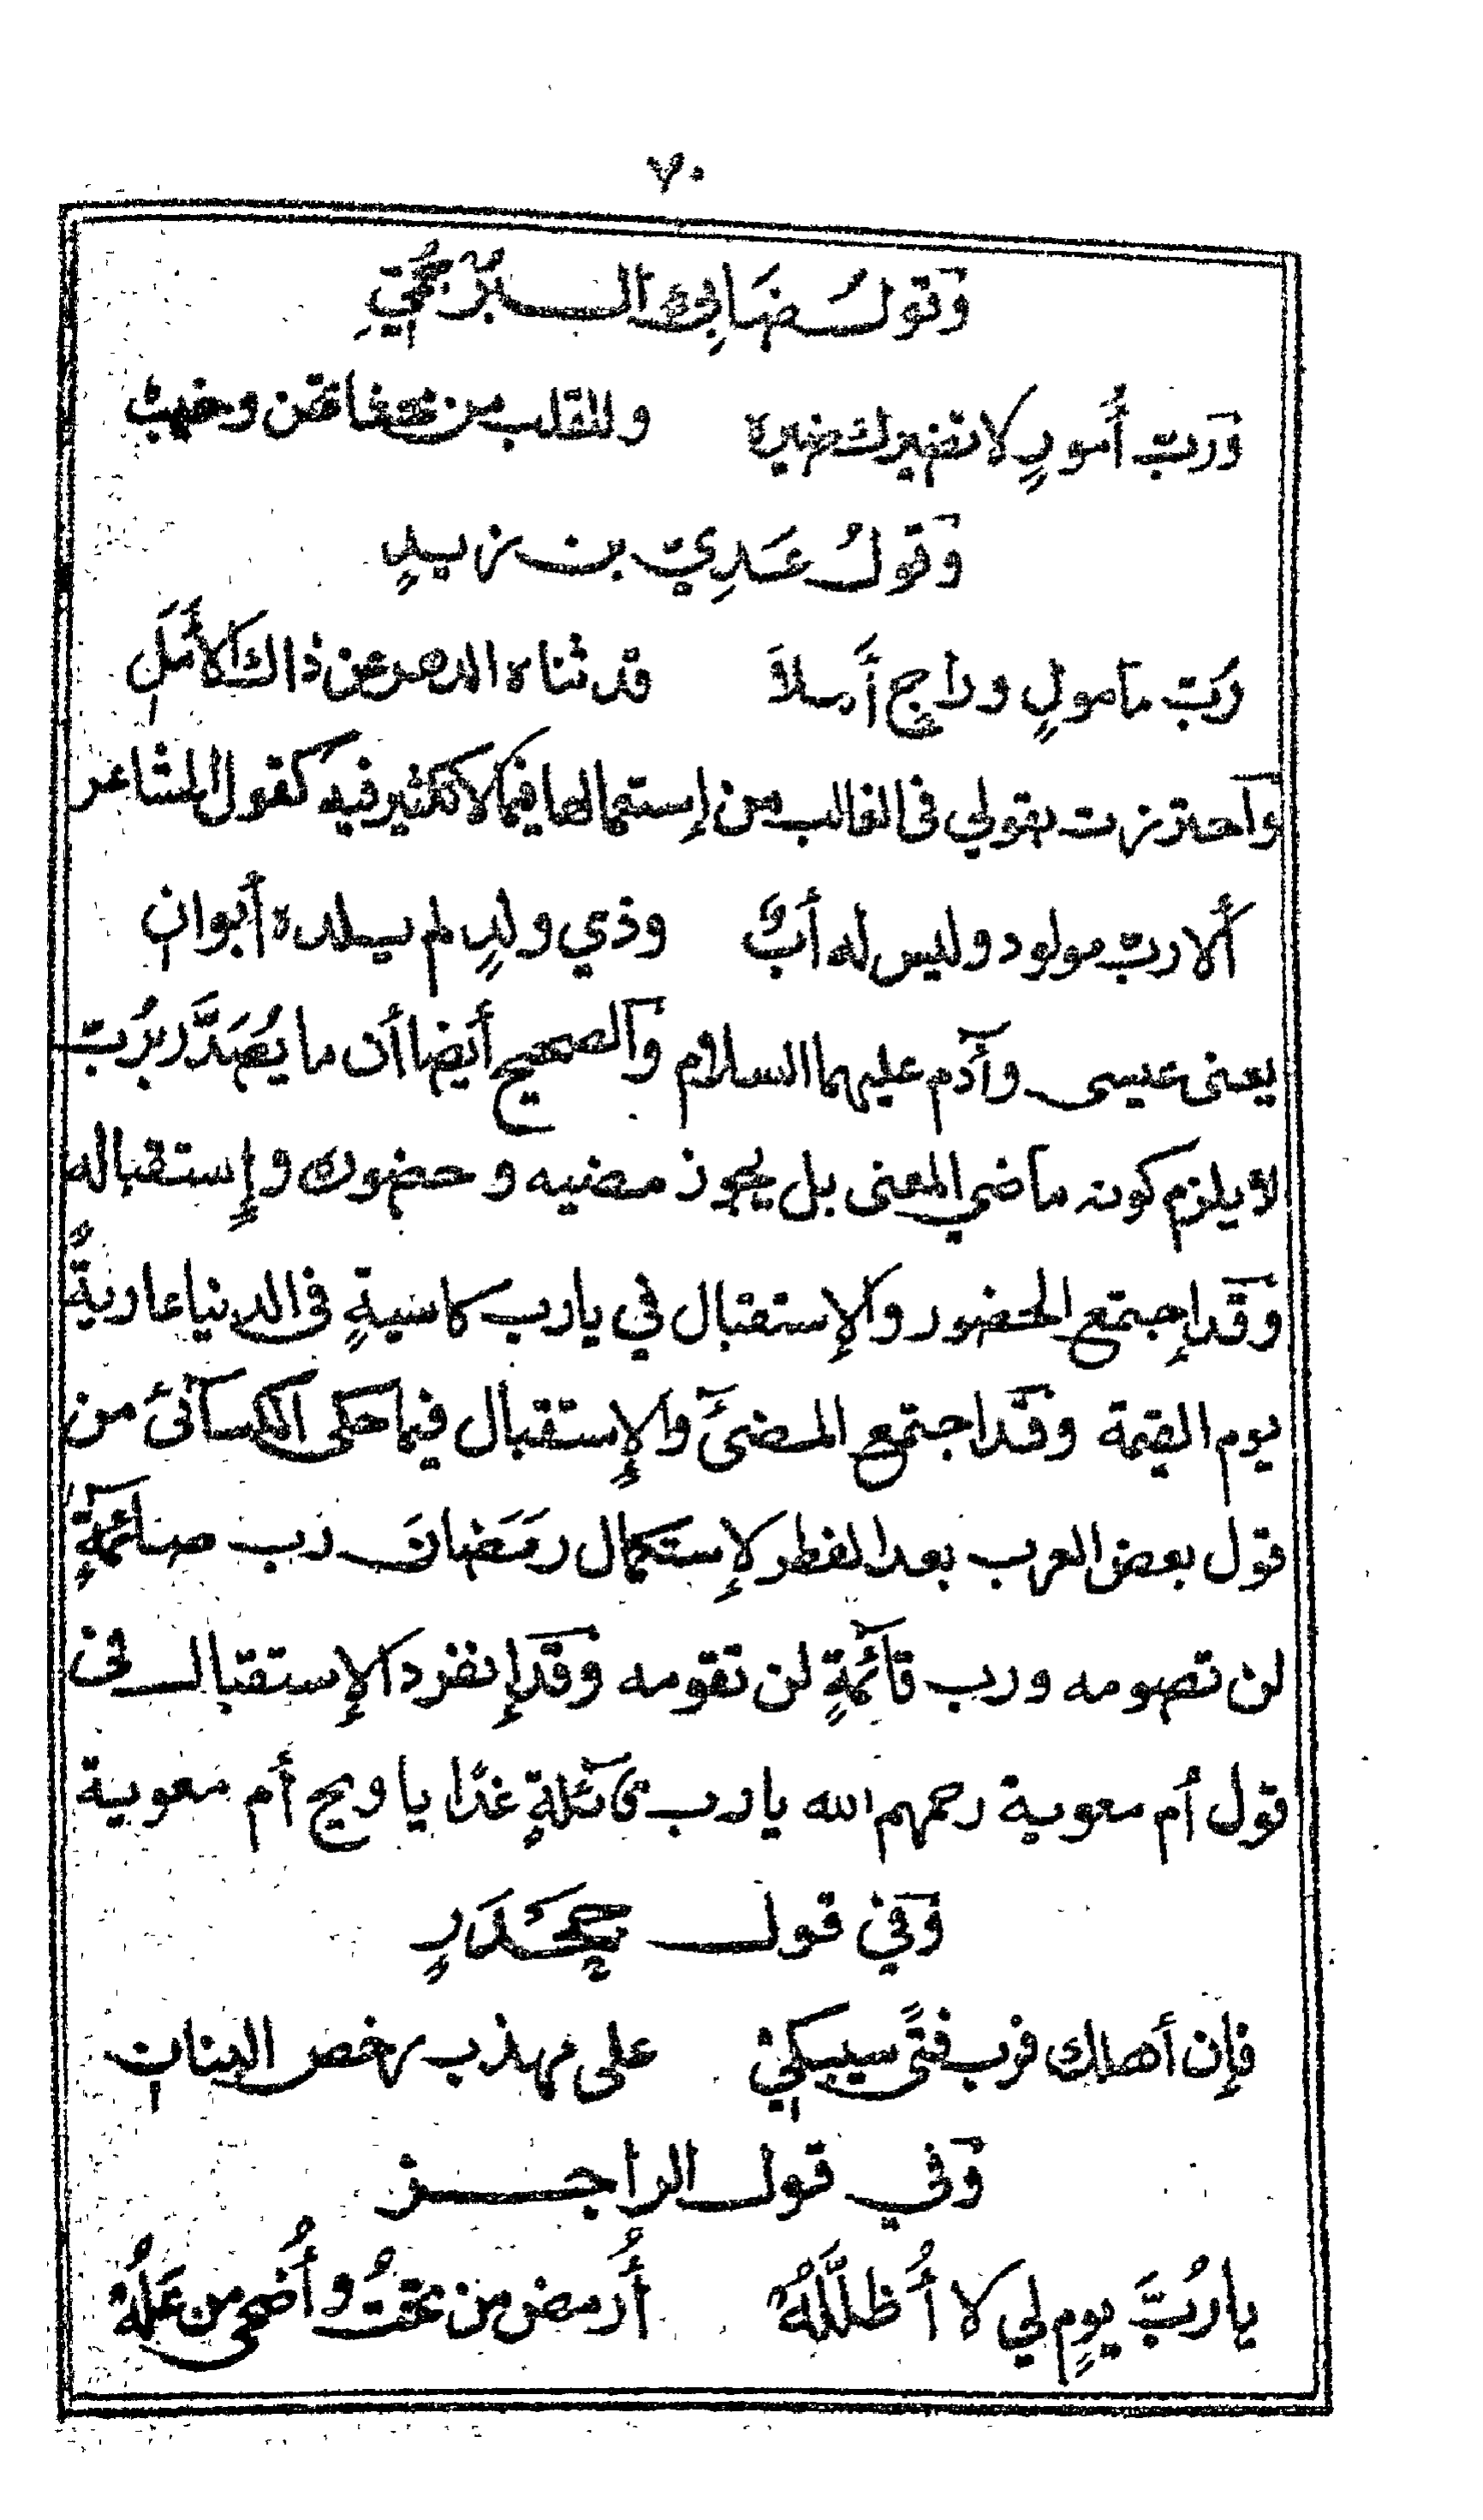 ٧٠
وَقولُ ضَابِئ البُرْجُمِيِّ
وَربّ أُمورٍ لا تضيرك ضيرة وللقلب من مخفاتهن وخيب
وَقولُ عَدِيّ بن زيدٍ
رُبّ مامولٍ وراجٍ أَملاً قد ثناه الدهر عن ذاك الأَمَلِ
وَاحترزت بقولي فى الغالب من إستعمالها فيما لا تكثير فيه كقول الشاعر
ألا ربّ مولود وليس له أبٌ وذي ولدٍ لم يلده أبوان
يعنى عيسى وآدم عليهما السلام وَالصحيح أيضا أن ما يُصَدَّر برُبّ
لا يلزم كونه ماضي المعنى بل يجوز مضيه وحضوره وإستقباله
وَقد إجتمع الحضور والإستقبال في يارب كاسيةٍ فى الدنيا عاريةٌ
يوم القيمة وقد اجتمع المضىّ والإستقبال فيما حكى الكسائى من
قول بعض العرب بعد الفطر لإستكمال رمَضَانَ رب صائمةٍ
لن تصومه ورب قائمةٍ لن تقومه وَقد إنفرد الإستقبال فى
قول أم معوية رحمهم الله يارب قائلةٍ غدًا يا ويح أم معوية
وَفي قول جَحْدَرٍ
فإن أهلك فرب فتًى سيبكي على مهذب رخص البنان
وَفي قول الراجز
يا رُبَّ يومٍ لي لا أُظلَّلُهْ أُرمض من تحتُ وأُضحى من عَلُهْ